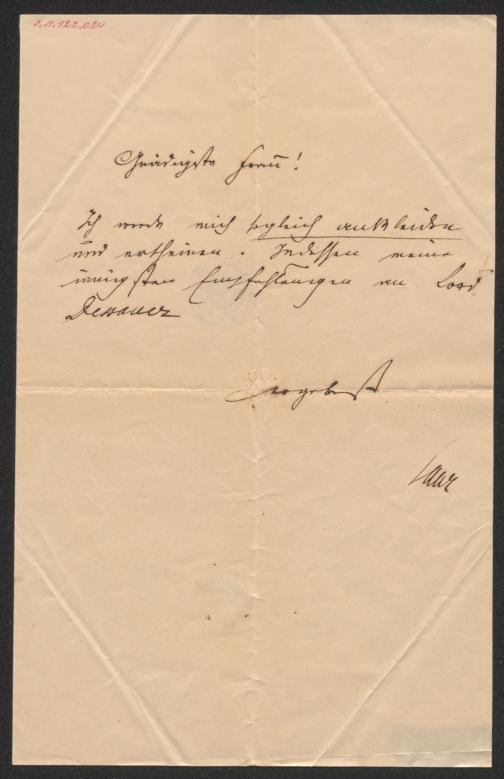 J.N. 122.024
Gnädigste Frau!
Ich werde mich sogleich ankleiden
und erscheinen. Indessen meine
innigsten Empfehlungen an Lord
Dessauer
Ergebenst